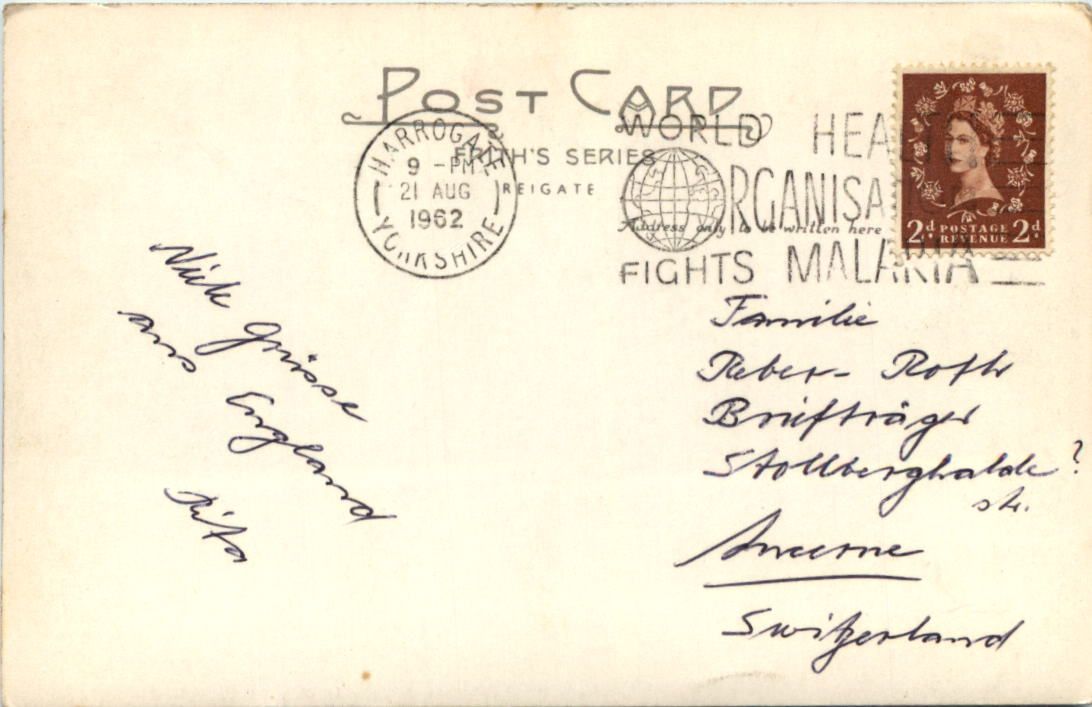 POST CARD
FRITH'S SERIES
REIGATE
HARROGATE
9 - PM
21 AUG
1962
YORKSHIRE
WORLD HEALTH
ORGANISA
FIGHTS MALARIA
Address only to be written here
2d. POSTAGE 2d.
REVENUE
Viele Grüsse
aus England
Rita
Familie
Reber - Roth
Briefträger
Stollberghalde ?
str.
Lucerne
Switzerland